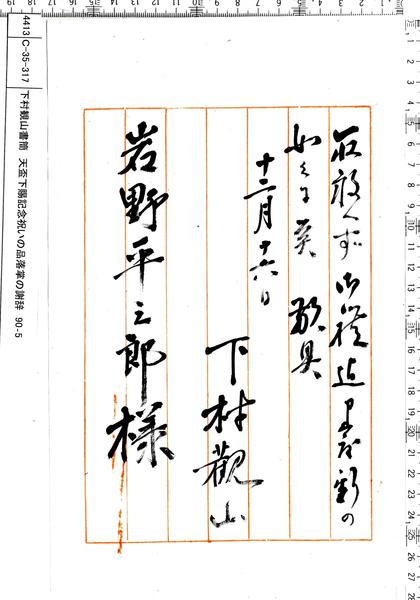 取敢へず御礼迄早々如斯の
如くに候 敬具
十二月十六日
下村観山
岩野平三郎様
4413 C-35-317 下村観山書簡 天盃下賜記念祝いの品落掌の謝辞 90-5